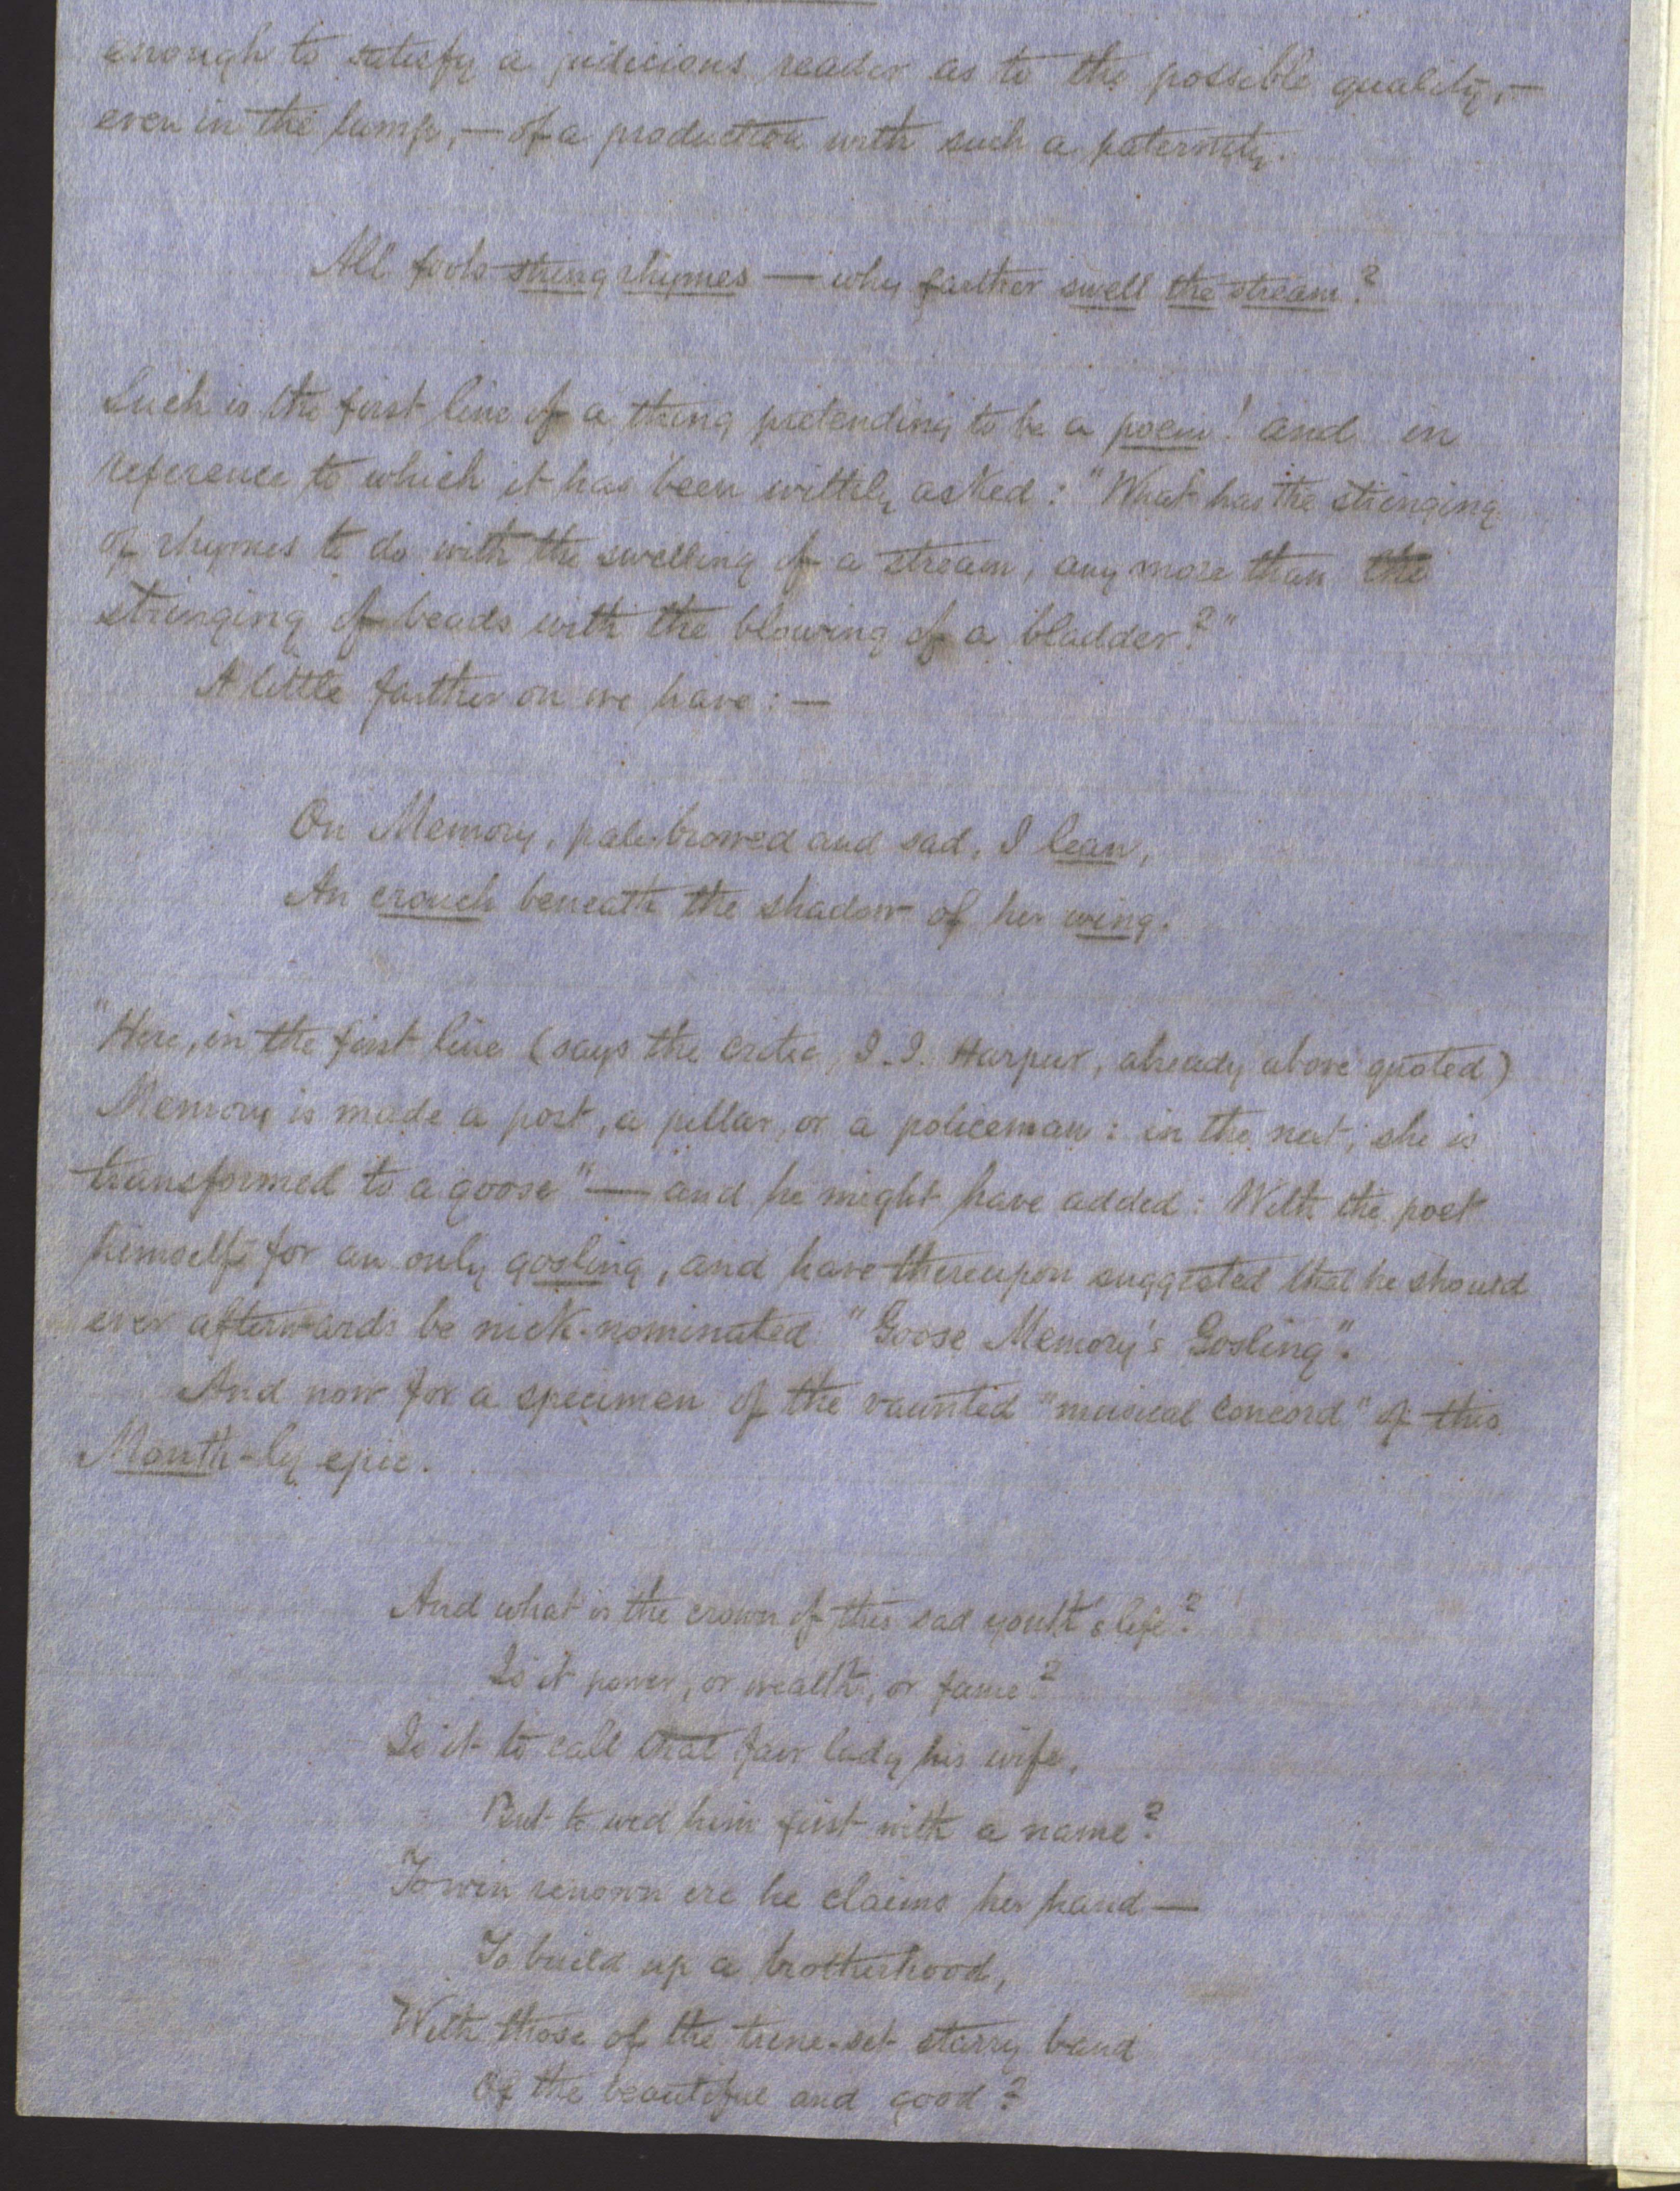 enough to satisfy a judicious reader as to the possible quality,—
even in the lump,— of a production with such a paternity.
All fools string rhymes — why farther swell the stream?
Such is the first line of a thing pretending to be a poem! and in
reference to which it has been wittily asked: "What has the stringing
of rhymes to do with the swelling of a stream, any more than the
stringing of beads with the blowing of a bladder?"
A little farther on we have: —
On Memory, pale-browed and sad, I lean,
An crouch beneath the shadow of her wing.
"Here, in the first line (says the critic, J. J. Harpur, already above quoted)
Memory is made a post, a pillar, or a policeman: in the next, she is
transformed to a goose" — and he might have added: With the poet
himself for an only gosling, and have thereupon suggested that he should
ever afterwards be nick-nominated "Goose Memory's Gosling".
And now for a specimen of the vaunted "musical concord" of this
Month-ly epic.
And what is the crown of this sad youth's life?
Is it power, or wealth, or fame?
Is it to call that fair lady his wife,
But to wed him first with a name?
To win renown ere he claims her hand —
To build up a brotherhood,
With those of the trine-set starry band
Of the beautiful and good?